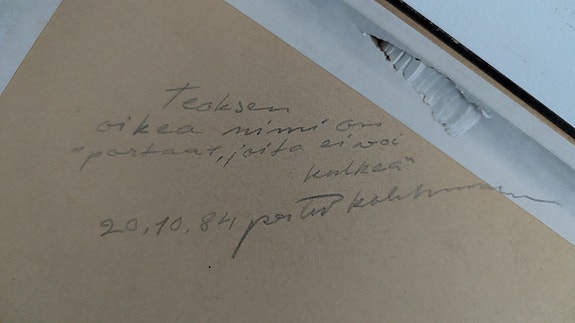 Teoksen
oikea nimi on
"portaat, joita ei voi
kulkea"
20.10.84 pertti